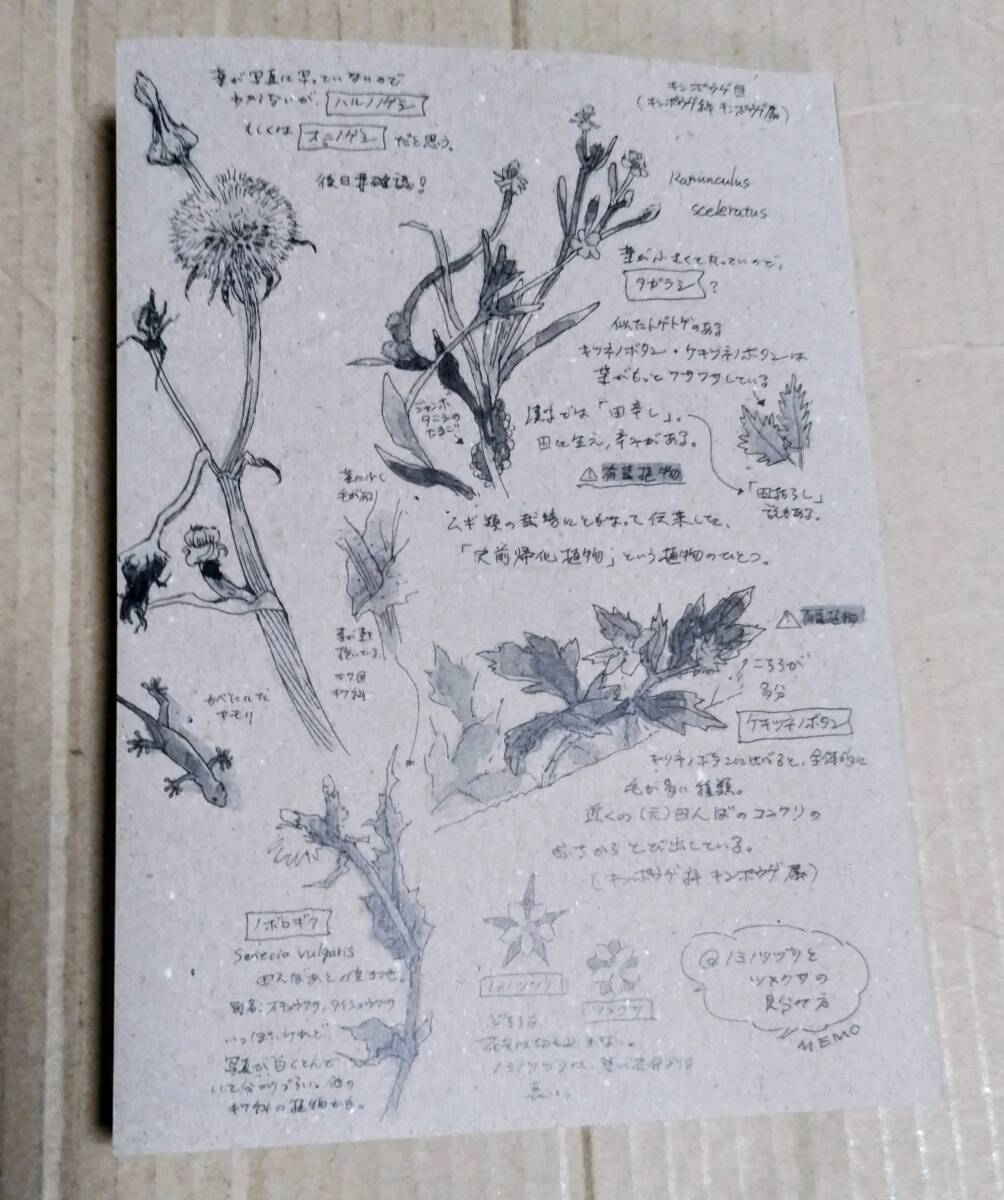 葉が写真に写っていないので
わからないが、ハルノノゲシ
もしくは オニノゲシ だと思う。
後日要確認！
キンポウゲ目
(キンポウゲ科 キンポウゲ属)
Ranunculus
sceleratus
葉が小さくて丸っていので、
タガラシ？
似たトゲトゲのある
キツネノボタン・ケキツネノボタンは
葉がもっとワサワサしている
ジャンボ
タニシの
たまご
漢字では「田辛し」。
田に生え、辛みがある。
⚠有毒植物
「田枯らし」
説もある。
ムギ類の栽培にともなって伝来した、
「史前帰化植物」という植物のひとつ。
葉に少し
毛があり
葉が茎
抱いている。
キク目
キク科
かべにいた
ヤモリ
⚠有毒植物
こちらが
多分
ケキツネノボタン
キツネノボタンに比べると、全体的に
毛が多い種類。
近くの(元)田んぼのコンクリの
からとび出している。
(キンポウゲ科 キンポウゲ属)
ノボロギク
Senecio vulgaris
田んぼあとの空き地。
別名:オキュウクサ、タイショウクサ
っぽいけれど
写真が白くとんで
いて分かりづらい。他の
キク科の植物かも。
ノミノツヅリ
ツメクサ
どちらも
花弁は切れ込まない。
ノミノツヅリは、萼が花弁より
長い。
@ノミノツヅリと
ツメクサの
見分け方
MEMO